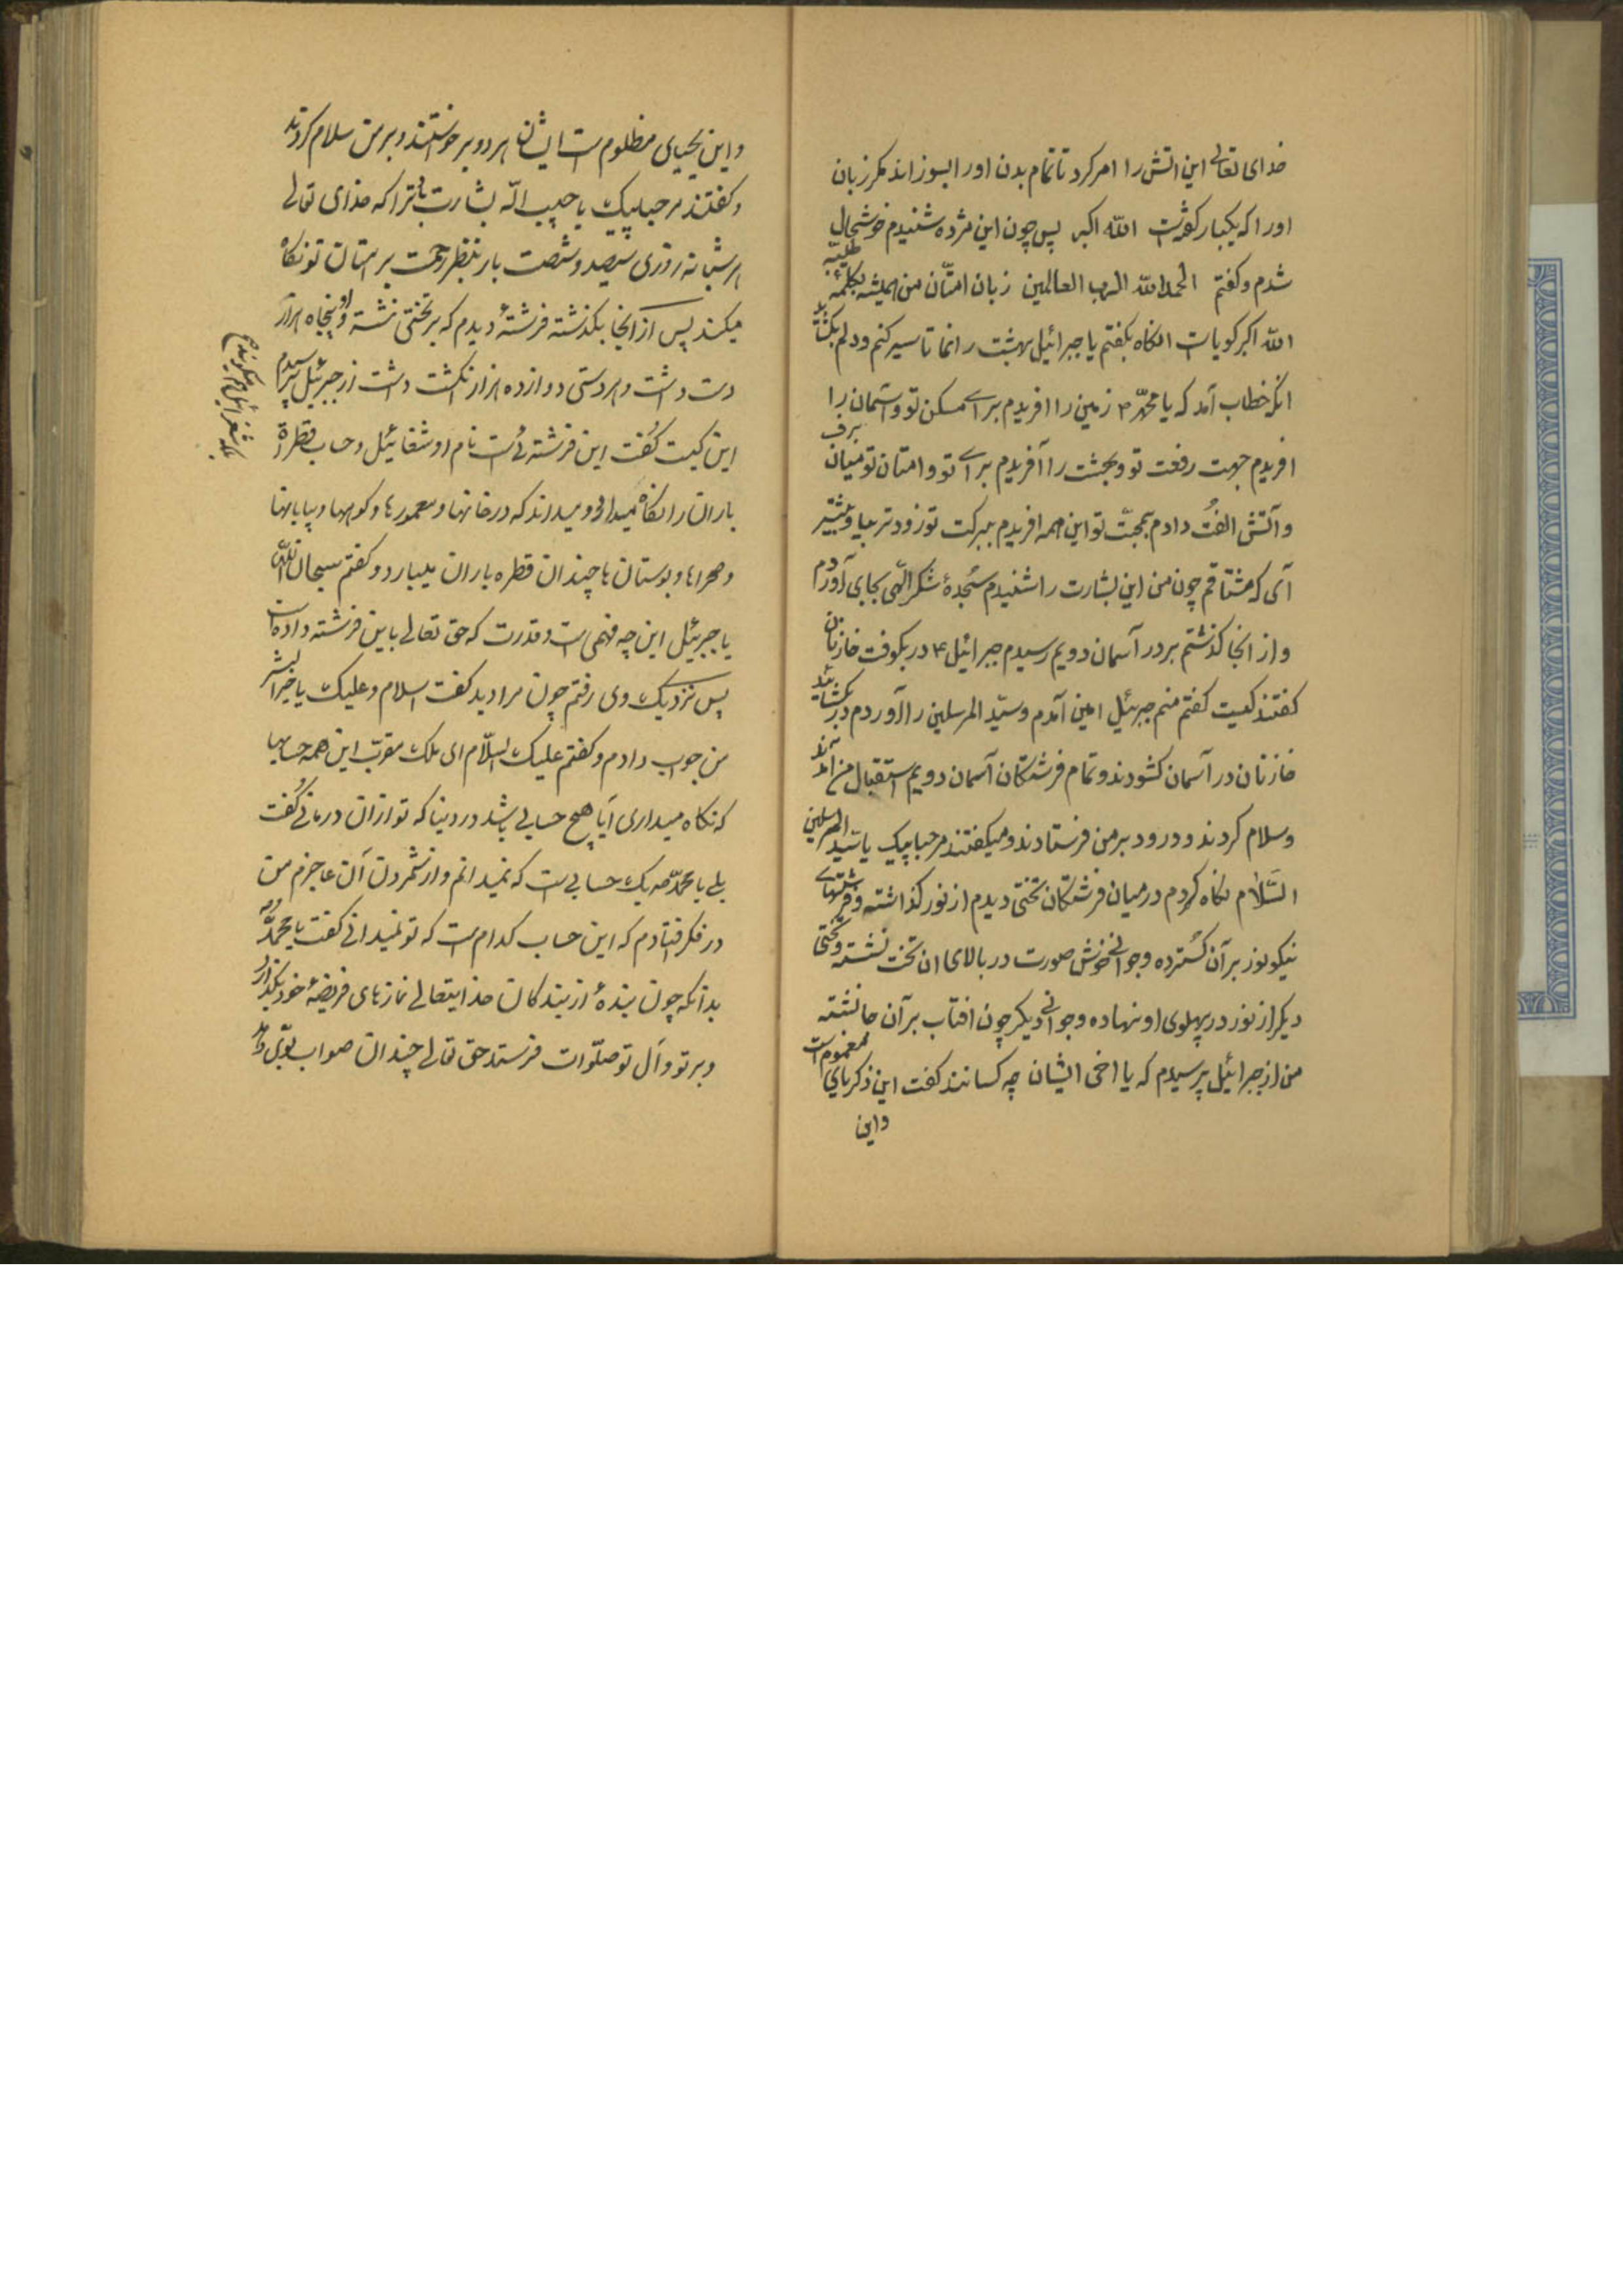 خدای تعالی این اتش را امر کرد تا تمام بدن اورا بسوزاند مکر زبان
اورا که یکبار کفته است الله اکبر پس چون این مژده شنیدم خوشحال
شدم و کفتم الحمدالله الرب العالمین زبان امتّان من همیشه بکلمهٔ طیّبه
الله اکبر کویا است انکاه بکفتم یا جبرائیل بهشت را نما تا سیر کنم و دلم بکشاید
انکه خطاب آمد که یا محمّد ۳ زمین را افریدم برای مسکن تو و آسمان را
افریدم جهت رفعت تو و بهشت را آفریدم برای تو و امتان تو میان برف
و آتش الفُت دادم بمحبّت تو این همه افریدم ببرکت تو زودتر بیا و پیشتر
آی که مشتاقم چون من این بشارت را شنیدم سَجدهٔ شکر الهی بجای آوردم
و از انجا کذشتم بر در آسمان دویم رسیدم جبرائیل ۴ در بکوفت خازنان
کفتند کیست کفتم منم جبرئیل امین آمدم و سیّد المرسلین را آوردم در بکشایند
خازنان در آسمان کشودند و تمام فرشتکان آسمان دویم استقبال من آمدند
و سلام کردند و درود بر من فرستادند و میکفتند مرحبا بیک یا سیّد المرسلین
السَّلام نکاه کردم در میان فرشتکان تختی دیدم از نور کذاشته و فرشتهای
نیکو نور بر آن کُسترده و جوانی خوش صورت در بالای ان تخت نشسته و تختی
دیکر از نور در پهلوی او نهاده و جوانی دیکر چون افتاب بر آن جا نشسته
من از جبرائیل پرسیدم که یا اخی ایشان چه کسانند کفت این ذکریای معموم است
واین
واین یحییای مظلوم است ایشان هر دو برخواستند و بر من سلام کردند
و کفتند مرحبابیک یا حبیب الله بشارت باد ترا که خدای تعالی
هر شبانه روزی سیصد و شصت بار بنظر رحمت بر امتان تو نکاه
میکند پس از انجا بکذشته فرشتهٔ دیدم که بر تختی نشسته و او پنجاه هزار
دست داشت و هر دستی دوازده هزار انکشت داشت از جبرئیل پرسیدم
این کیست کُفت این فرشته ئی است نام او شفائیل و حساب قطرهٔ
باران را نکاه میدارد و میداند که در خانها و معمورها و کوهها و بیابانها
و صحراها و بوستان ها چندان قطره باران میبارد و کفتم سبحان الله
یا جبرئیل این چه فهمی است و قدرت که حق تعالی باین فرشته داده است
پس نزدیک وی رفتم چون مرا دید کفت اسلام و علیک یا خیر البشر
من جواب دادم و کفتم علیک السّلام ای ملک مقرّب این همه حسابها
که نکاه میداری آیا هیچ حسابی باشد در دنیا که تو از آن درمانی کُفت
بلی یا محمّد صه یک حسابی است که نمیدانم و از شمردن آن عاجزم من
در فکر افتادم که این حساب کدام است که تو نمیدانی کفت یا محمّد
بدانکه چون بندهٔ از بندکان خدایتعالی نمازهای فریضهٔ خود بکذارد
و بر تو و آل تو صلوات فرستد حق تعالی چندان صواب بوی دهد